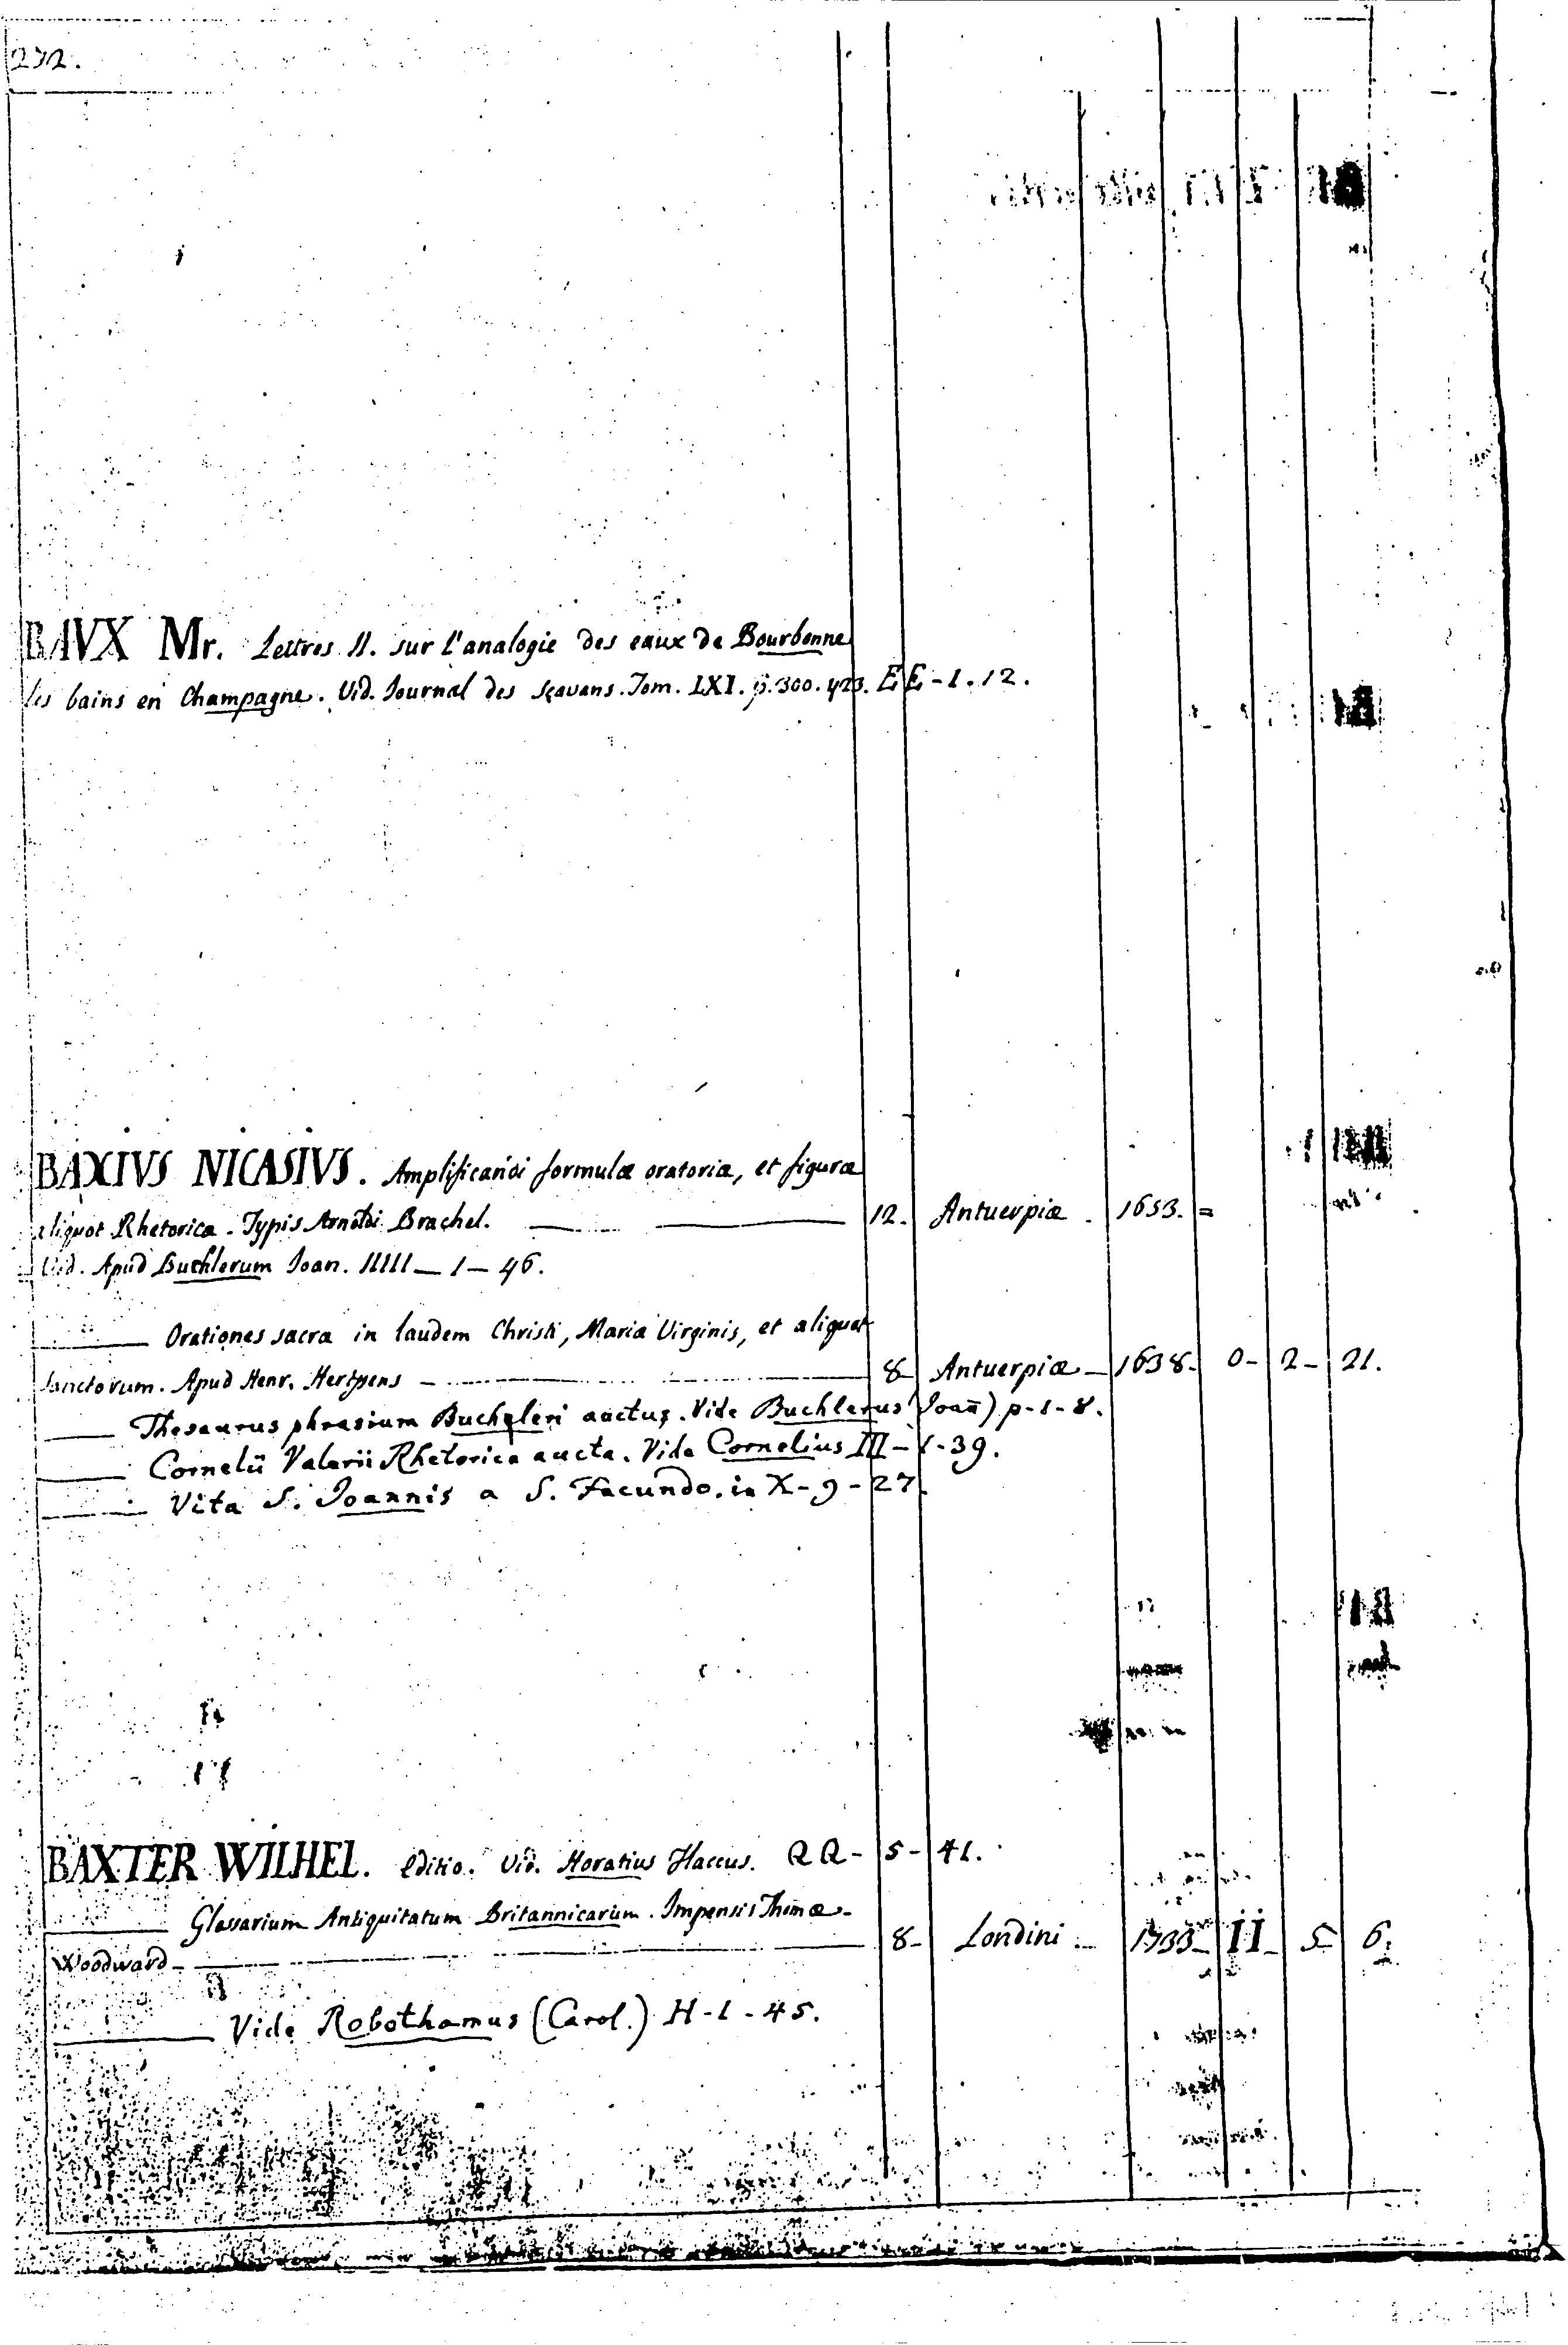 272.
BAVX Mr. Lettres II. sur l'analogie des eaux de Bourbonne
les bains en Champagne. Vid. Journal des sçavans. Tom. LXI. p. 300. 423. EE-1.12.
BAXIVS NICASIVS. Amplificandi formulæ oratoriæ, et figuræ
aliquot Rhetoricæ. Typis Arnoldi Brachel. 12. Antuerpiæ. 1653. =
Vid. Apud Buchlerum Joan. IIIII-1-46.
Orationes sacræ in laudem Christi, Mariæ Virginis, et aliquot
sanctorum. Apud Henr. Hertsens - 8- Antuerpiæ - 1638- 0- 2- 21.
Thesaurus phrasium Buchleri auctus. Vide Buchlerus (Joañ) p-1-8.
Cornelii Valerii Rhetorica aucta. Vide Cornelius III-1-39.
Vita S. Joannis a S. Facundo. in X-9-27.
BAXTER WILHEL. editio. Vid. Horatius Flaccus. QQ-5-41.
Glassarium Antiquitatum Britannicarum. Impensis Thomæ-
Woodward- 8- Londini 1733- II- 5- 6.
Vide Robothamus (Carol.) H-1-45.